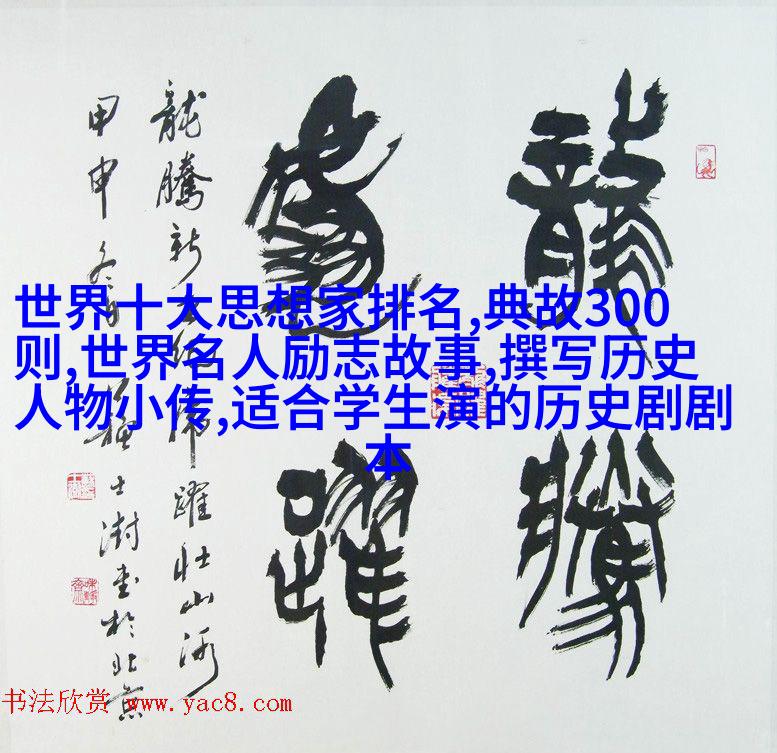 世界十大思想家排名,典故300
则,世界名人励志故事,撰写历史
人物小传,适合学生演的历史剧剧
本
龍騰
虎躍
龍騰新 虎躍壯山河
甲申冬日 士澍書於北京
书法欣赏 www.yac8.com